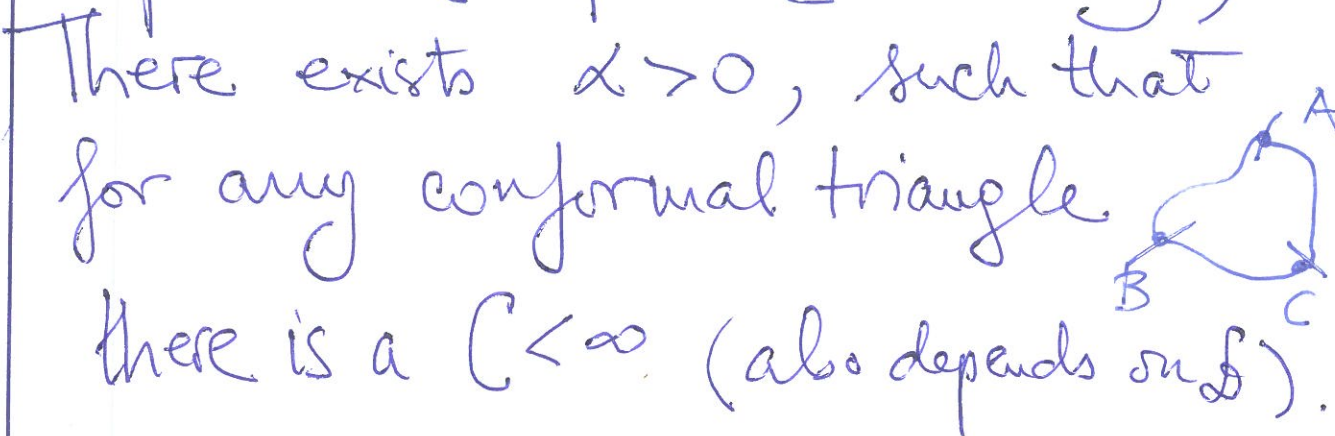 There exists α>0, such that
for any conformal triangle
there is a C<∞ (also depends on
A
B
C